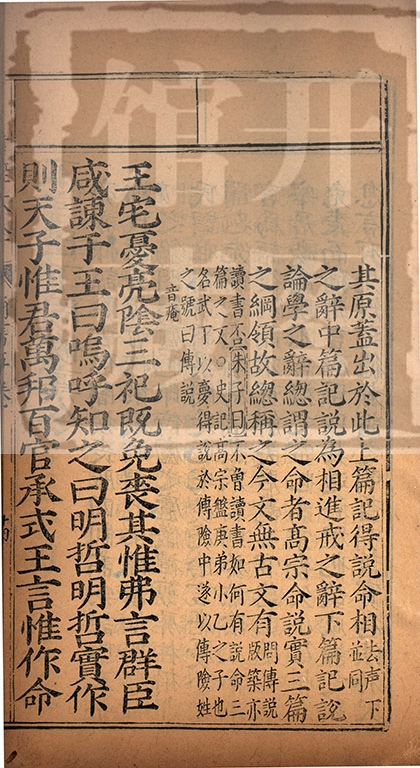 其原蓋出於此上篇記得說命相去声下並同
之辭中篇記說為相進戒之辭下篇記說
論學之辭總謂之命者高宗命說實三篇
之綱領故總稱之今文無古文有問傳說版築亦
讀書否朱子曰不曾讀書如何有說命三
篇之文○史記高宗盤庚弟小乙之子也
名武丁以夢得說於傅險中遂以傅險姓
之號曰傅說
王宅憂亮陰音庵三祀既免喪其惟弗言群臣
咸諫于王曰嗚呼知之曰明哲明哲實作
則天子惟君萬邦百官承式王言惟作命